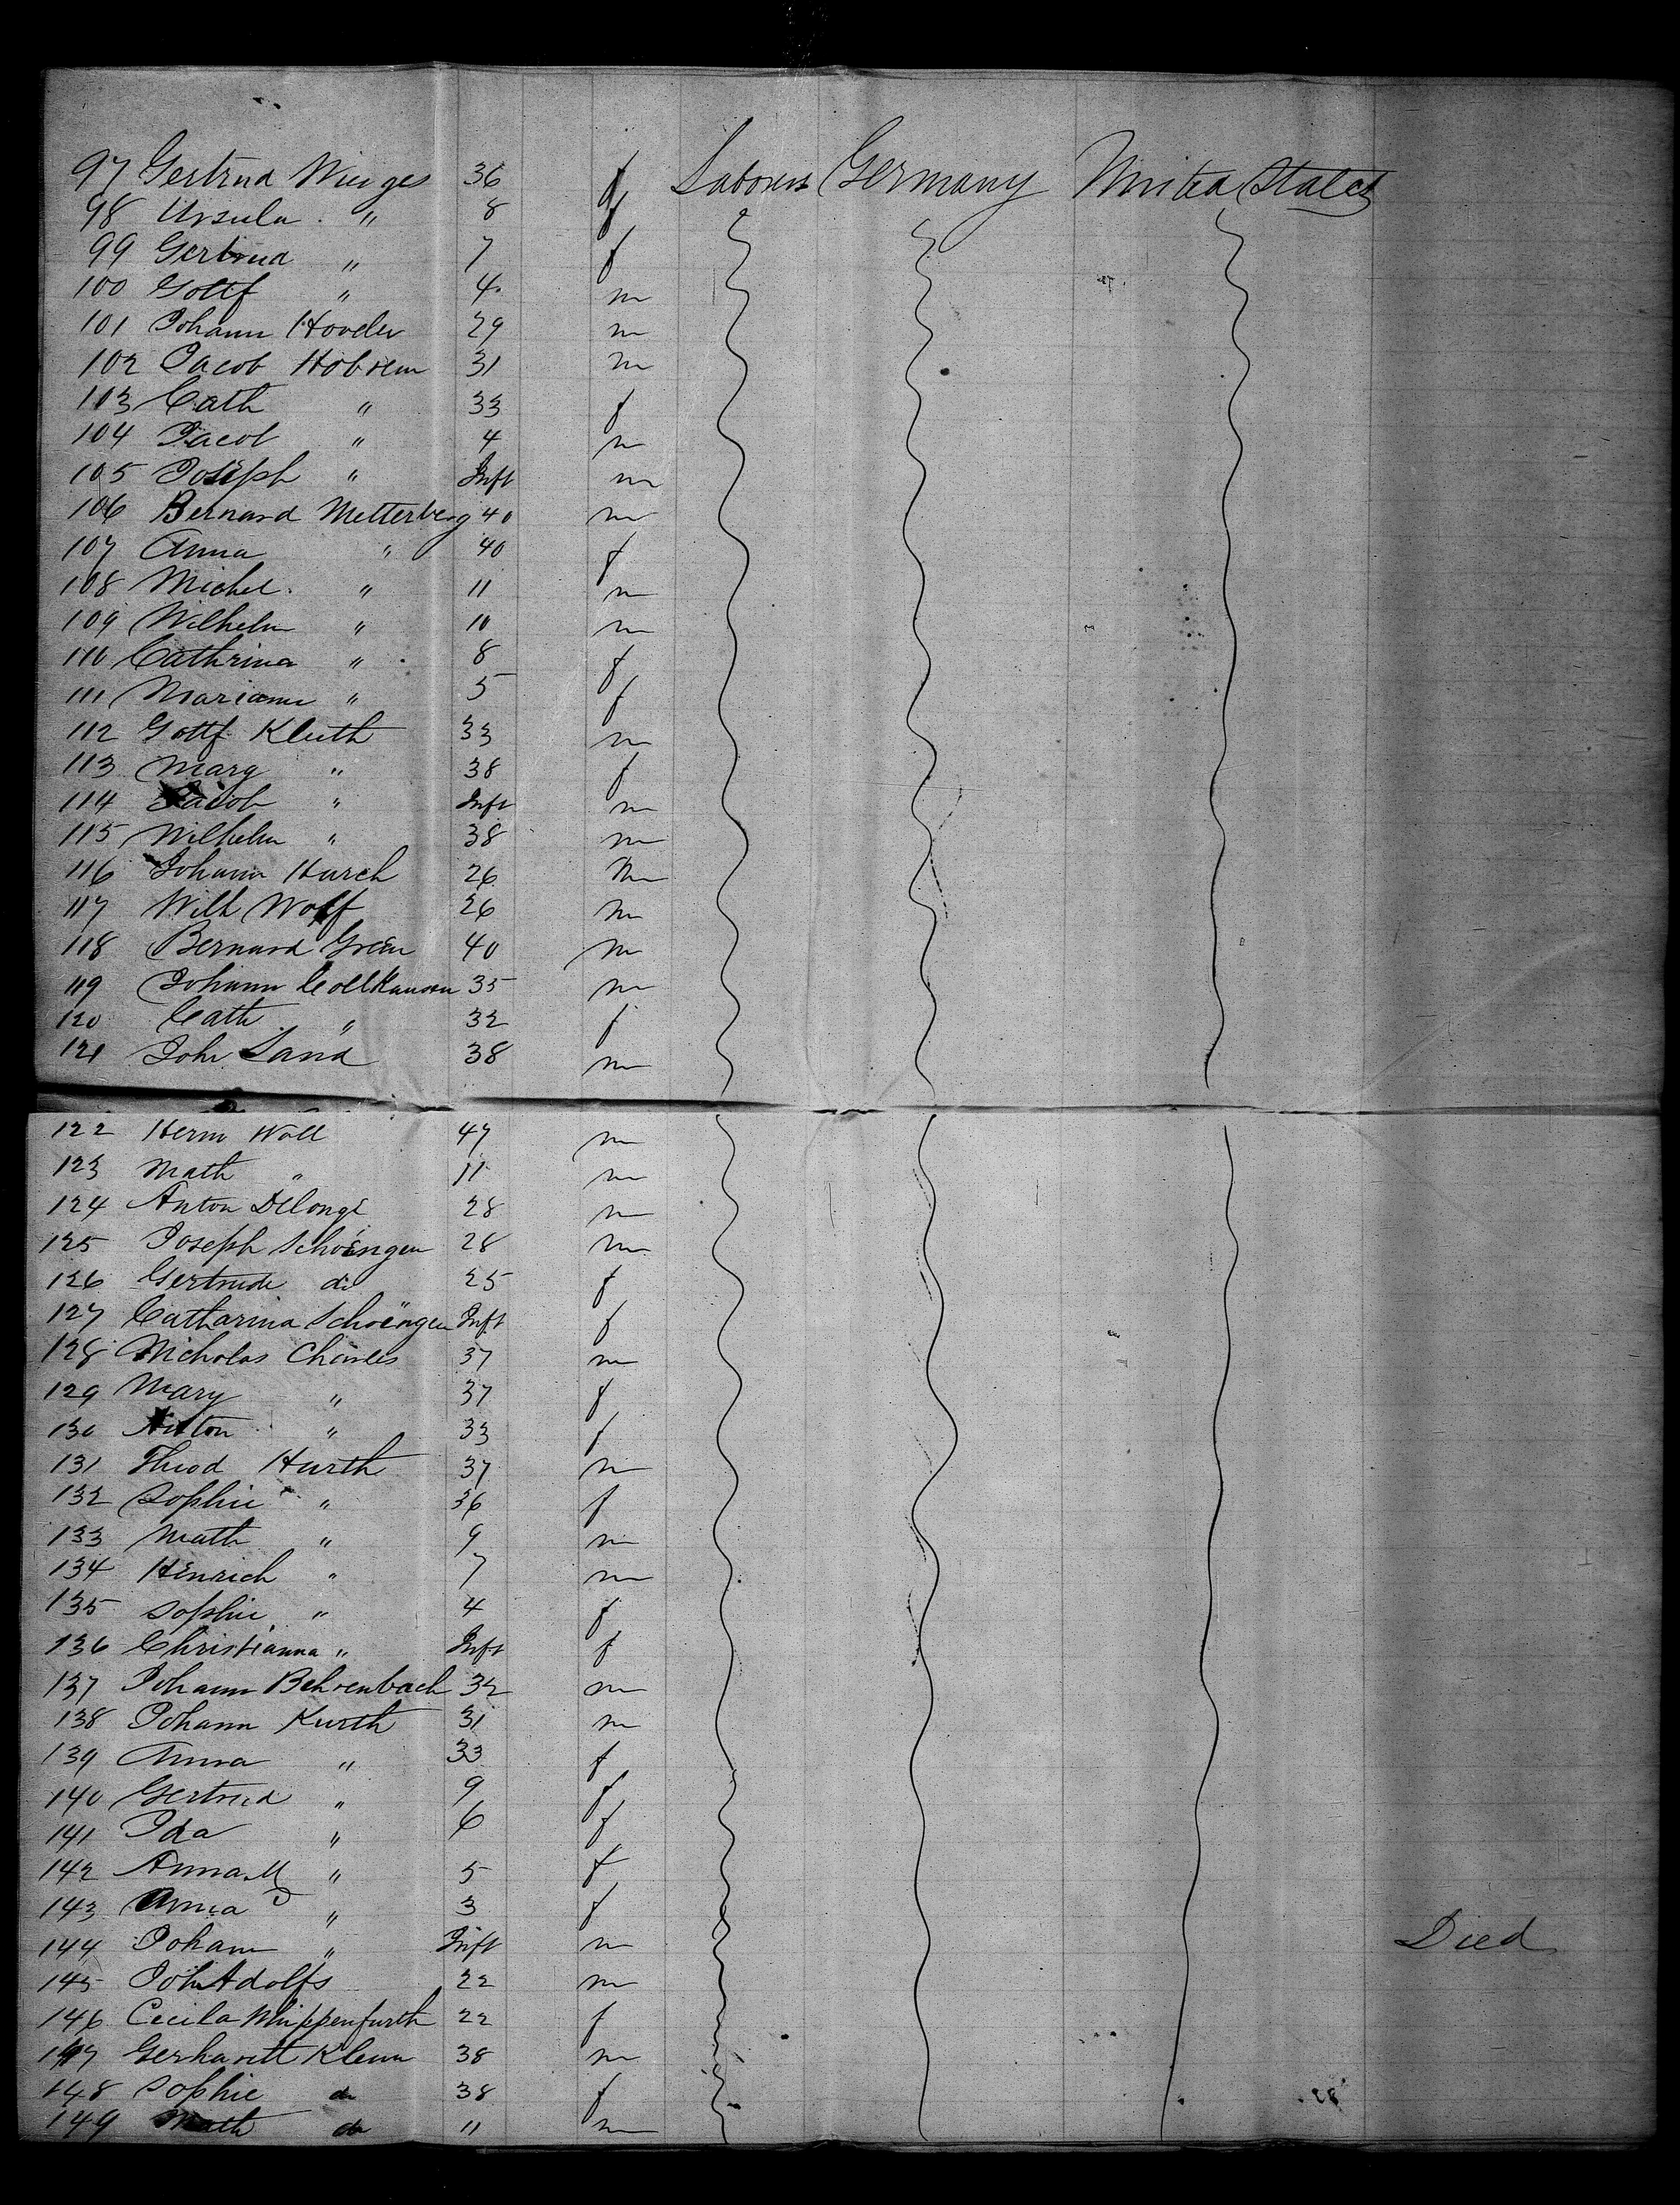 97 Gertrud Winges 36 f Laborers Germany United States
98 Ursula " 8 f
99 Gertrud " 7 f
100 Gottf " 4 m
101 Johann Hovder 29 m
102 Jacob Hobrem 31 m
103 Cath " 33 f
104 Jacob " 4 m
105 Joseph " Inft m
106 Bernard Metterberg 40 m
107 Anna " 40 f
108 Michel " 11 m
109 Wilhelm " 10 m
110 Cathrina " 8 f
111 Mariann " 5 f
112 Gottf Kluth 33 m
113 Marg " 38 f
114 Jacob " Inft m
115 Wilhelm " 38 m
116 Johann Hurch 26 m
117 Wilh Wolf 26 m
118 Bernard Green 40 m
119 Johann 35 m
120 Cath " 32 f
121 John Land 38 m
122 Herm Woll 47 m
123 Math " 11 m
124 Anton Delongé 28 m
125 Joseph Schoengen 28 m
126 Gertrude do 25 f
127 Catharina Schoengen Inft f
128 Nicholas Charles 37 m
129 Mary " 37 f
130 Anton " 33 f
131 Theod Hurth 37 m
132 Sophie " 36 f
133 Math " 9 m
134 Henrich " 7 m
135 Sophie " 4 f
136 Christianna " Inft f
137 Johann Behrenbach 32 m
138 Johann Kurth 31 m
139 Anna " 33 f
140 Gertrud " 9 f
141 Ida " 6 f
142 Anna M " 5 f
143 Anna " 3 f
144 Johann " Inft m Died
145 Joh Adolfs 22 m
146 Cecila Whippenfurth 22 f
147 Gerhardt Klein 38 m
148 Sophie do 38 f
149 Math do 11 m